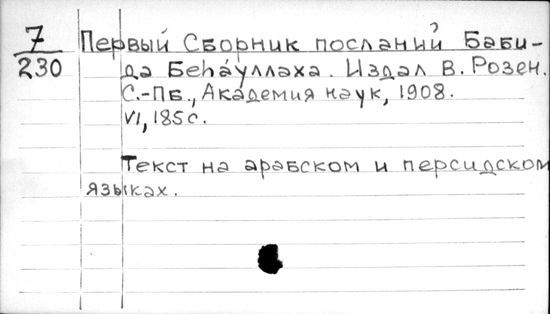 7 Первый Сборник посланий Баби-
230 да Беháуллаха. Издал В. Розен.
С.-Пб., Академия наук, 1908.
VI, 185 с.
Текст на арабском и персидском
языках.